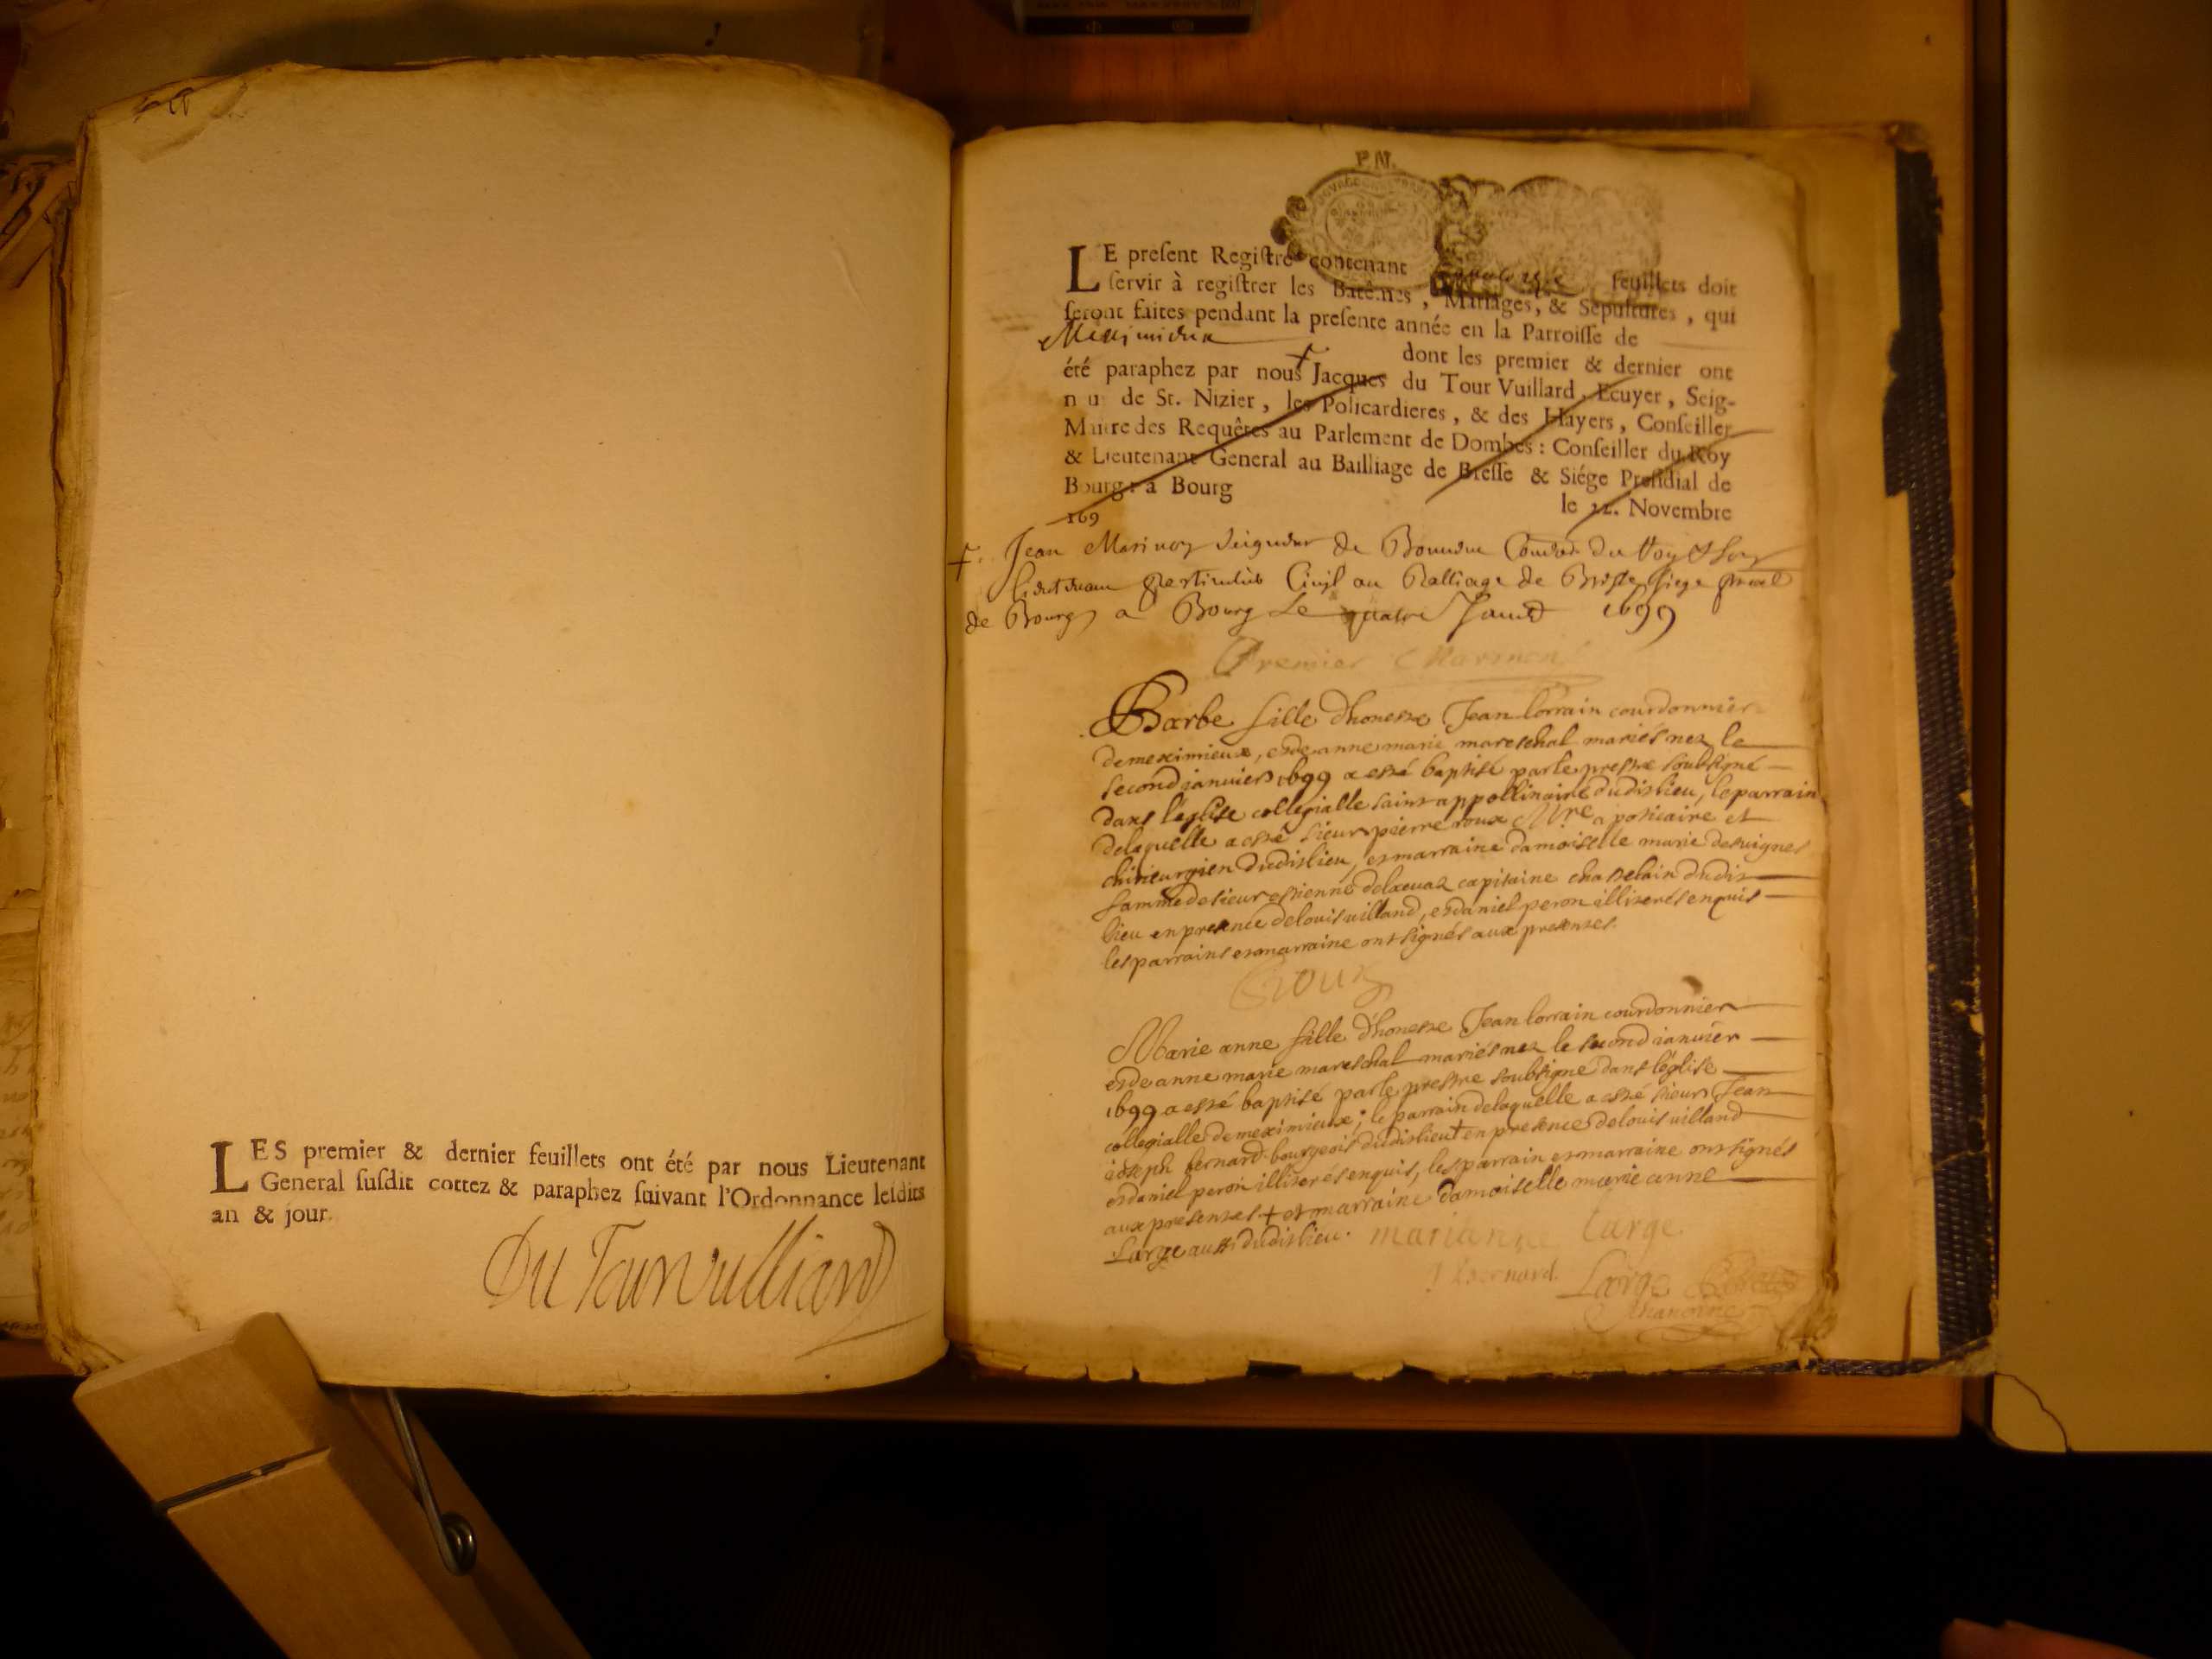 LES premier & dernier feuillets ont été par nous Lieutenant
General suſdit cottez & paraphez ſuivant l'Ordonnance leſdits
an & jour.
Du Tour Vulliard
P. N.
LE preſent Regiſtre contenant feuillets doit
ſervir à regiſtrer les Batêmes, Mariages, & Sepultures, qui
ſeront faites pendant la preſente année en la Parroiſſe de
Meximieux
dont les premier & dernier ont
été paraphez par nous Jacques du Tour Vuillard, Ecuyer, Seig-
n u de St. Nizier, les Policardieres, & des Hayers, Conſeiller
Maitre des Requêtes au Parlement de Dombes : Conſeiller du Roy
& Lieutenant General au Bailliage de Breſſe & Siége Preſidial de
Bourg : à Bourg le 22. Novembre
169
+ Jean Seigneur de du Roy
Lieutenant Civil au Balliage de Bresse Siege
de Bourg a Bourg Le quatre 1699
Premier
Barbe fille dhoneste Jean lorrain courdonnier
demeximieux, et de anne marie mareschal mariés nez le
second ianuier 1699 a esté baptisé par le prestre soubsigné
dans l'eglise collegialle saint appollinaire dudit lieu, le parrain
de laquelle a esté sieur pierre roux Mre apoticaire et
chirieurgien dudit lieu, et marraine damoiselle marie desuignes
famme de sieur estienne capitaine chastelain dudit
lieu en presence de louis uilland, et daniel peron illiterés enquis
les parrains et marraine ont signés aux presentes.
Roux
Marie anne fille dhoneste Jean lorrain courdonnier
et de anne marie mareschal mariés nez le second ianuier
1699 a esté baptisé par le prestre soubsigné dans l'église
collegialle de meximieux; le parrain de laquelle a esté sieur Jean
ioseph bernard bourgeois dudit lieu + en presence de louis uilland
et daniel peron illiterés enquis, les parrain et marraine ont signés
aux presentes + et marraine damoiselle marie anne
Large aussi dudit lieu. marianne large
J bernard Large
chanoine